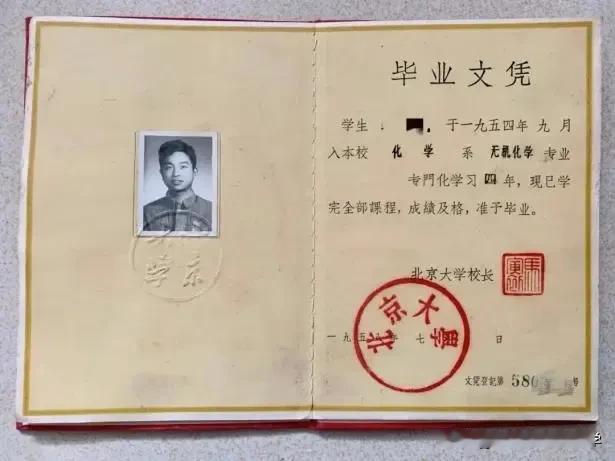 毕业文凭
学生 于一九五四年九月
入本校 化学 系 无机化学 专业
专門化学习四年，现已学
完全部課程，成績及格，准予毕业。
北京大学校长
北京大學
一九五八年七 日
文凭登記第 580 号